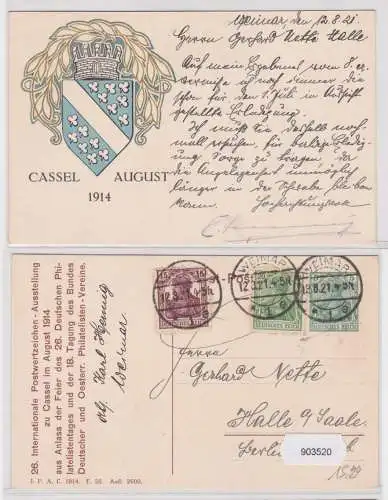 Weimar den 12.8.21.
Herrn Gerhard Nette Halle
Auf mein
immer die
für den Juli in Aussicht
gestellte Erledigung.
Ich muß Sie deshalb noch-
mals ersuchen, für baldige Erledi-
gung Sorge zu tragen, da
die Angelegenheit unmöglich
länger in der Schwebe bleiben
kann. Hochachtungsvoll
CASSEL AUGUST
1914
26. Internationale Postwertzeichen-Ausstellung
zu Cassel im August 1914
aus Anlass der Feier des 26. Deutschen Phi-
latelistentages und der 18. Tagung des Bundes
Deutscher und Oesterr. Philatelisten-Vereine.
Karl Hennig
Weimar
WEIMAR
12.8.21.4-5N.
WEIMAR
12.8.21.4-5N.
DEUTSCHES REICH
Herrn
Gerhard Nette
Halle a/Saale
903520
I. P. A. C. 1914. Aufl. 2000.